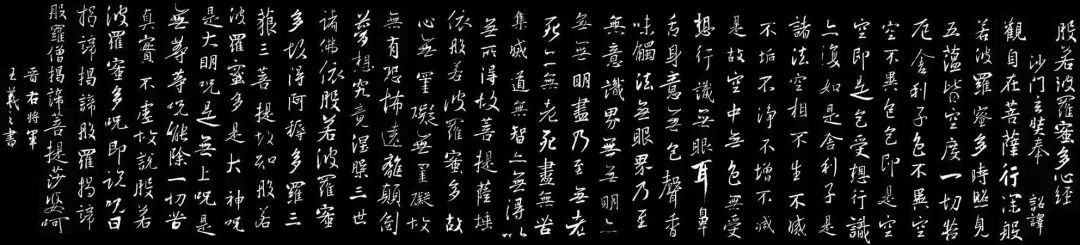 般若波羅蜜多心經
沙門玄奘奉 詔譯
觀自在菩薩行深般
若波羅蜜多時照見
五蘊皆空度一切苦
厄舍利子色不異空
空不異色色即是空
空即是色受想行識
亦復如是舍利子是
諸法空相不生不滅
不垢不淨不增不減
是故空中無色無受
想行識無眼耳鼻
舌身意無色聲香
味觸法無眼界乃至
無意識界無無明亦
無無明盡乃至無老
死亦無老死盡無苦
集滅道無智亦無得以
無所得故菩提薩埵
依般若波羅蜜多故
心無罣礙無罣礙故
無有恐怖遠離顛倒
夢想究竟涅槃三世
諸佛依般若波羅蜜
多故得阿耨多羅三
藐三菩提故知般若
波羅蜜多是大神呪
是大明呪是無上呪是
無等等呪能除一切苦
真實不虛故說般若
波羅蜜多呪即說呪曰
揭諦揭諦般羅揭諦
般羅僧揭諦菩提莎婆呵
晉右將軍
王羲之書